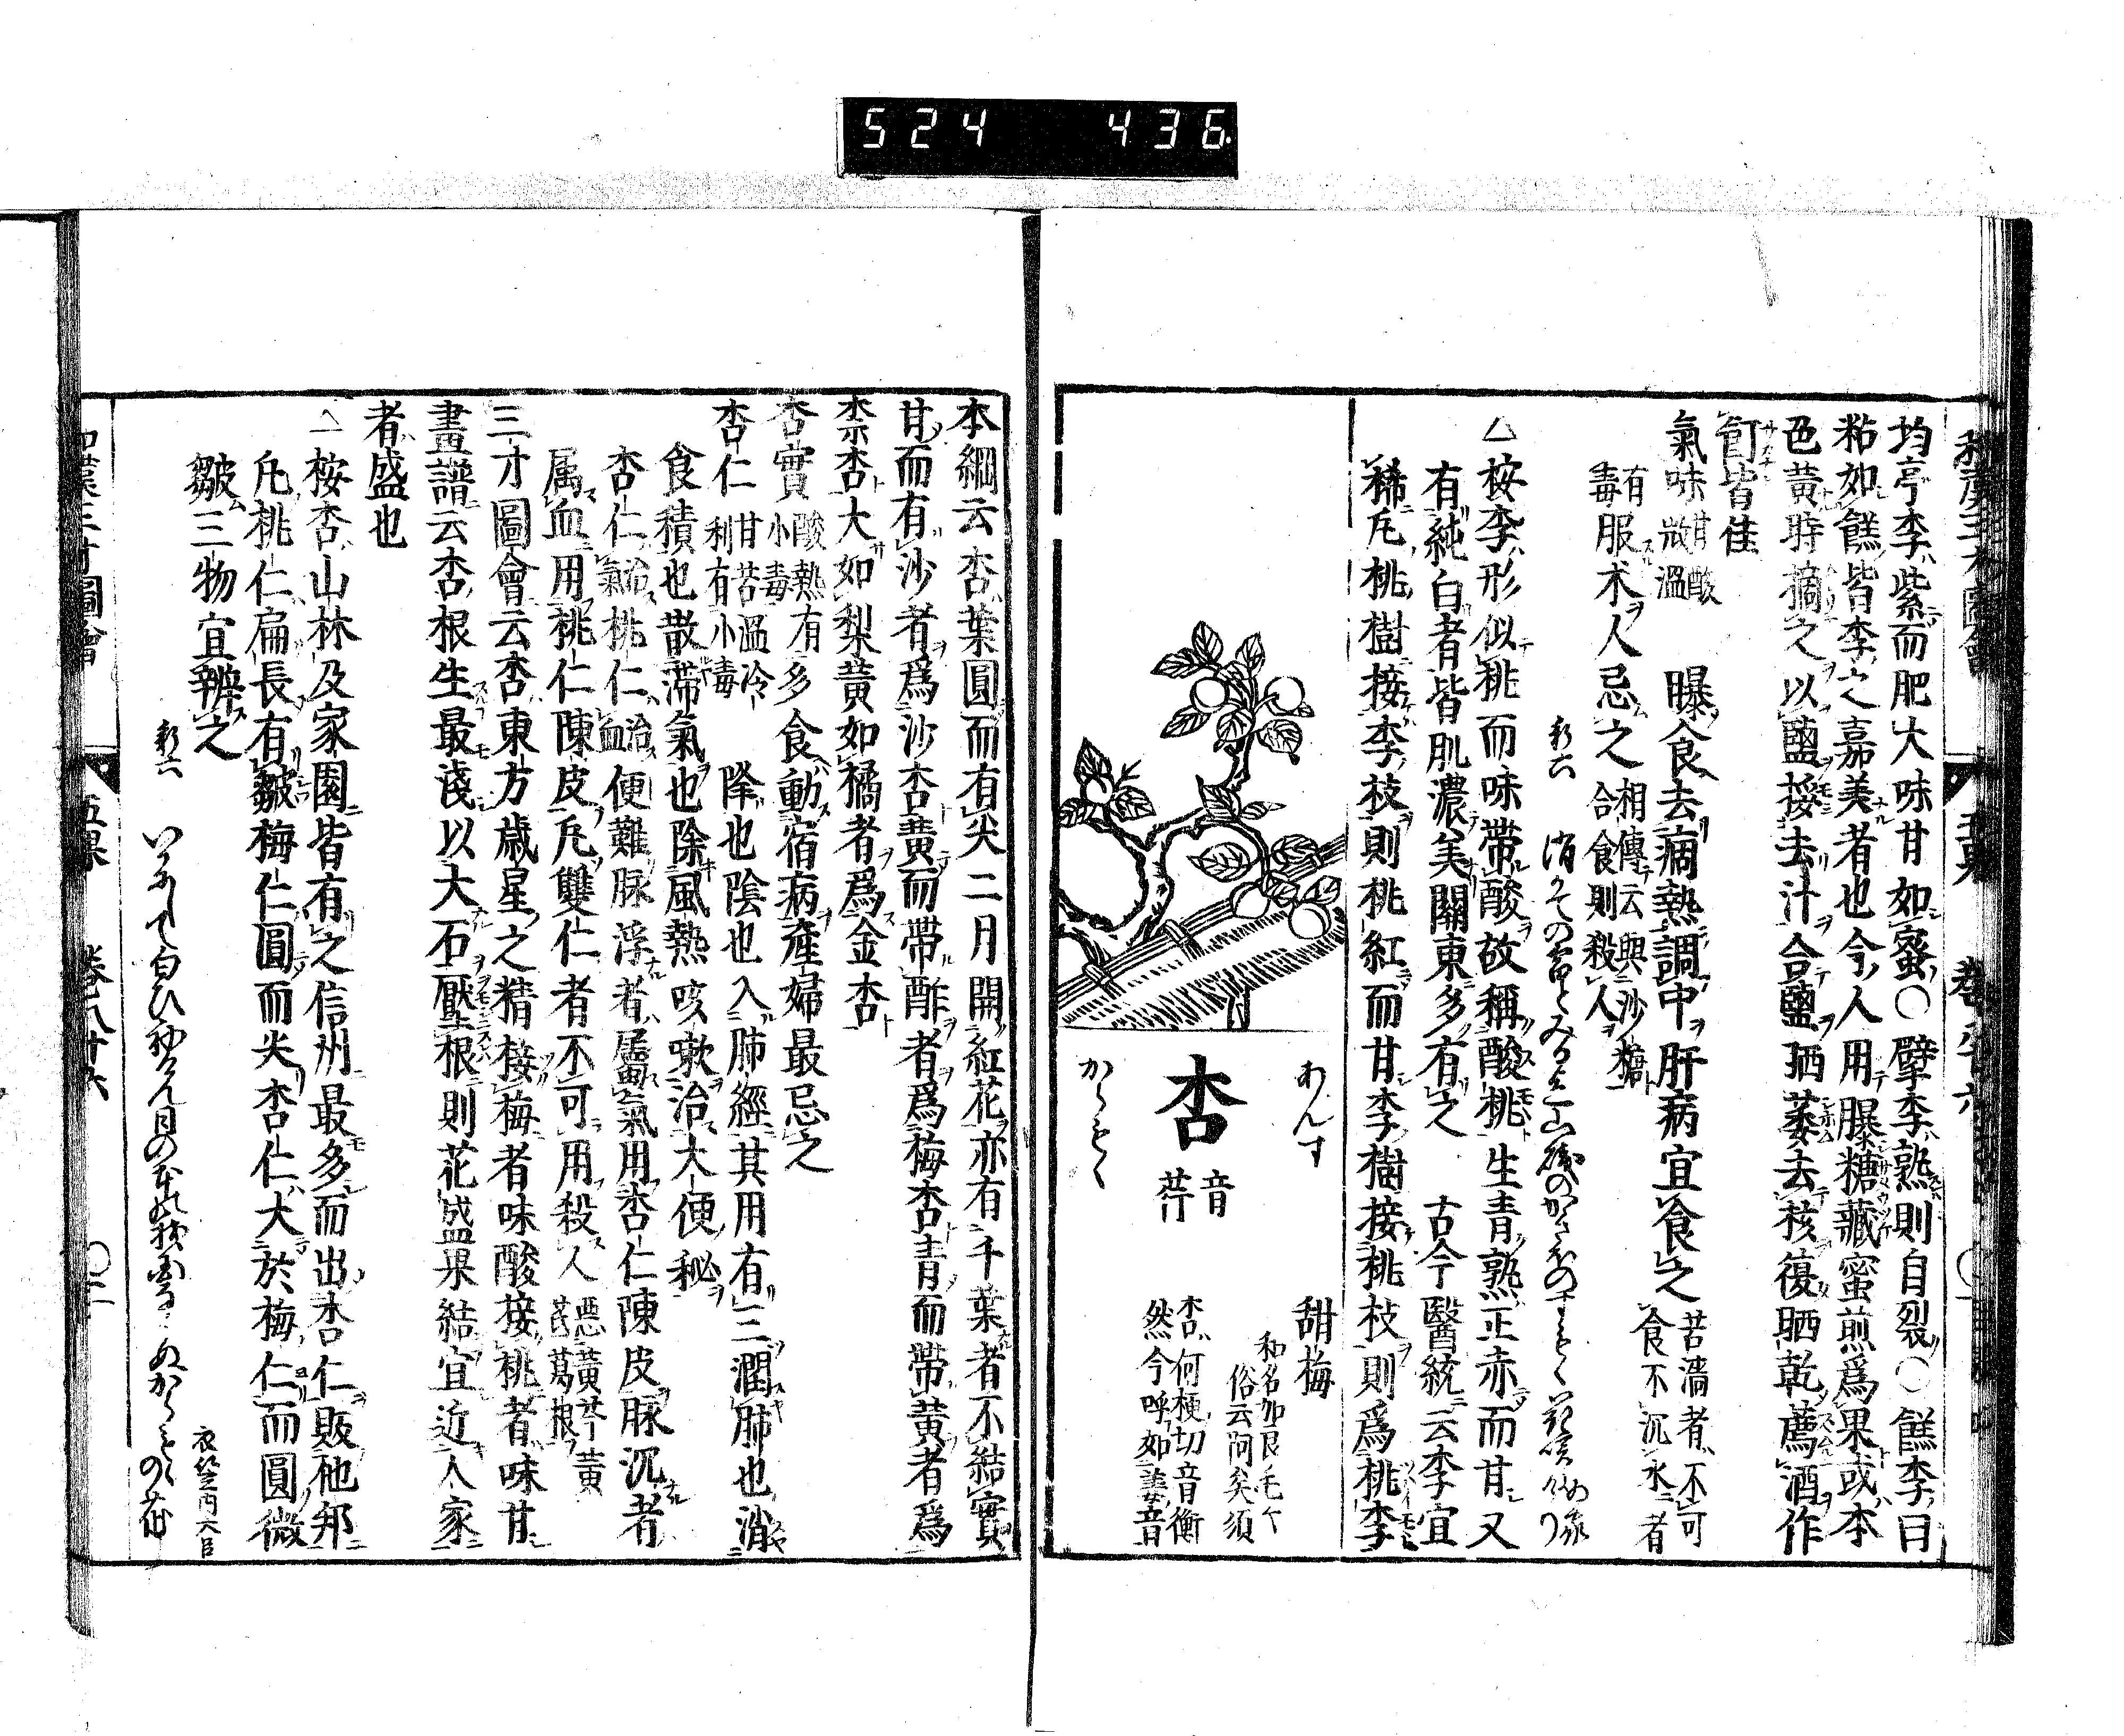 524 436
均亭李紫而肥大味甘如蜜○擘李熟則自裂○餻李日
粘如餻皆李之嘉美者也今人用曝糖藏蜜煎爲果或本
色黄時摘之以鹽挼去汁合鹽晒萎去核復晒乾薦酒作
飣皆佳
氣味 甘酸微溫 曝食去痼熱調中肝病宜食之 苦濇者不可食不沉水者
有毒服术人忌之 相傳云與沙糖合食則殺人
新六
△桉李形似桃而味帶酸故稱酸桃生青熟正赤而甘又
有純白者皆肌濃美關東多有之 古今醫統云李宜
稀凢桃樹接李枝則桃紅而甘李樹接桃枝則爲桃李
あんず
杏 音荇
からもゝ
甜梅
和名加良毛々
俗云阿矣須
杏何梗切音衡
然今呼如姜音
本綱云杏葉圓而有尖二月開紅花亦有千葉者不結實
甘而有沙者爲沙杏黄而帶酢者爲梅杏青而帶黄者爲
柰杏大如梨黄如橘者爲金杏
杏實 酸熱有小毒 多食動宿病産婦最忌之
杏仁 甘苦溫冷利有小毒 降也陰也入肺經其用有三潤肺也消
食積也散滯氣也除風熱咳嗽治大便秘
杏仁治氣桃仁治血便難脉浮者屬氣用杏仁陳皮脉沉者
属血用桃仁陳皮凢雙仁者不可用殺人 惡黄芩黄芪葛根
三才圖會云杏東方歲星之精接梅者味酸接桃者味甘
畫譜云杏根生最淺以大石壓根則花盛果結宜近人家
者盛也
△桉杏山林及家園皆有之信州最多而出杏仁販他邦
凢桃仁扁長有皺梅仁圓而尖杏仁大於梅仁而圓微
皺三物宜辨之
新六
衣笠内大臣
和漢三才圖會 五果 卷八十六 ○二